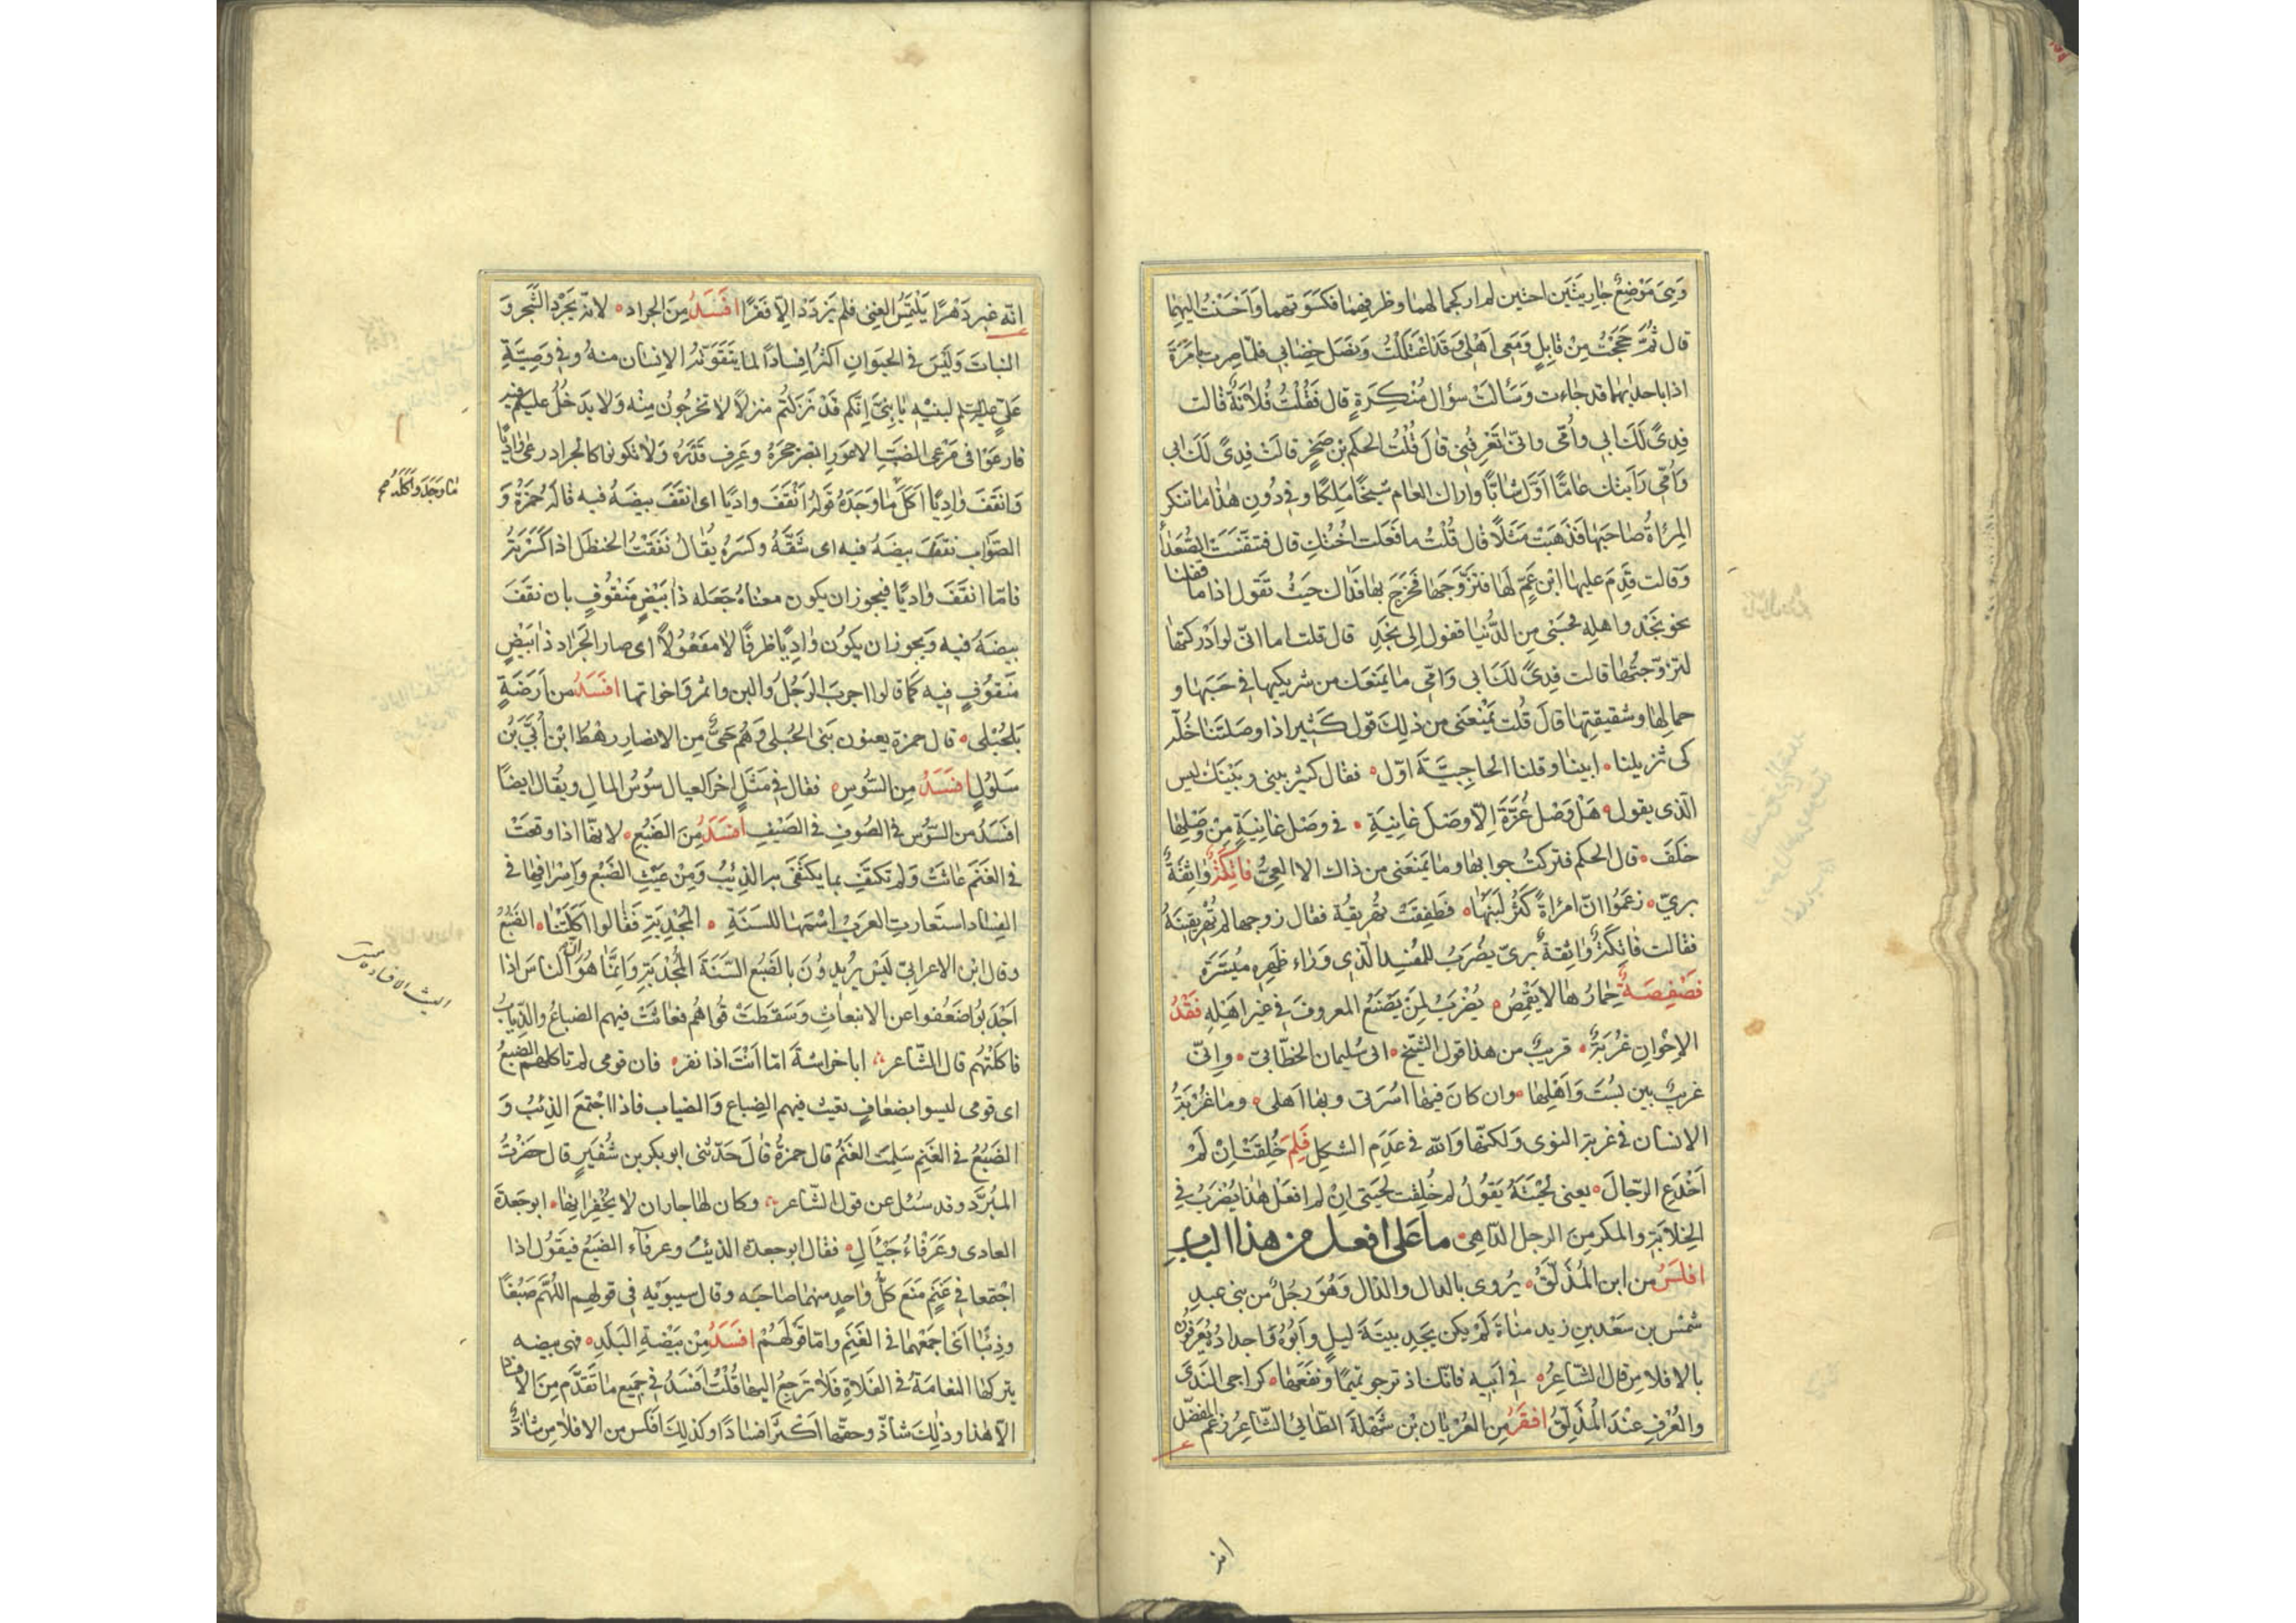 وَهِيَ مَوْضِعُ جاريتَين اختين لم ار كجمالهما وظرفهما فكسوتهما وَاَحْسَنْتُ اليهِما
قال ثُمَّ حَجَجْتُ مِنْ قابِلٍ وَمَعِى اَهْلِى وَقَدْ اعْتَلَلْتُ وَنَصَل خِضابي فلمّا صِرت بِامَرَّةَ
اذا باحديهما قد جاءت وَسَاَلَتْ سؤال مُنْكِرَةٍ قال فَقُلْتُ فُلانَةُ قالت
فِدىً لَكَ ابي وأمّى وانّى تَعْرِفُنِى قالَ قُلْتُ الحكم بن صَخْرٍ قالَتْ فِدىً لَكَ ابى
وَاُمّى رَاَيتك عامًا اَوَّلَ شابًّا واراك العام شيخًا مَلِكًا وفي دُونِ هٰذا ما تنكر
المِراةُ صاحَبَها فَذَهَبَتْ مَثَلًا قال قُلْتُ ما فَعَلت اُخْتُكِ قال فتنفّسَتِ الصُّعَداء
وَقالت قَدِمَ عليها ابْن عَمٍّ لَها فتزَوَّجَها فخَرَجَ بها فذاك حيثُ تَقول اذا ما قفلنا
نحو نجْد واهلِه فحَسْبى مِنَ الدُّنيا قفول اِلى نجْدِ قال قلت اما انّى لو اَدْركتها
لتزوّجتُها قالت فِدىً لَكَ ابى وَاُمّى ما يَمنعَك من شريكتها في حَسَبها و
جمالِها وشقيقتِها قالَ قُلت يَمْنَعُنى من ذلِكَ قول كَثَيِر اذا وصَلَتْنا خُلّة
كى تزيلنا ابينا وقلنا الحاجِبيَّة اوّل فقال كثيّر بينى وبَيْنَك ليس
الّذى يقول هَلْ وَصْل عُزَّةَ اِلّا وصْلَ غانِيَةٍ في وَصْل غانِيَةٍ مِنْ وَصْلِها
خَلَفَ قال الحكم فتركتُ جوابها وما يَمنعَنى من ذاك الا العِىُّ فاتِكَةٌ واثِقَةٌ
بِرِىّ زعَمُوا انّ امراةً كَثُرَ لَبَنُها فَطَفِقَتْ تُهرِيقُهُ فقال زوجها لِم تُهْرِيقينَهُ
فقالت فاتِكَةٌ واثِقةٌ بِرىّ يضْرَبُ للمُفسِد الّذى وَراء ظَهرِه مَيْسَرَةٌ
فَصْفِصَةٌ حِمارُها لا يَقْمِصُ يُضْرَبُ لِمَنْ يَصْنَعُ المعروفَ في غيرِ اهْلِه فَقْدُ
الاِخْوانِ غُرْبَةٌ قريبٌ من هذا قول الشّيخ ابى سُليمان الخطّابيّ وانّى
غريبٌ بين بُسْتَ وَاَهْلِها وان كانَ فيها اُسْرَتى وبها اَهلى وما غُرْبَةُ
الانسان في غربة النوى وَلكنّها وَالله في عَدَمِ الشكلِ فَلِمَ خُلِقَتْ اِنْ لَمْ
اَخْدَعِ الرّجالَ يعنى لِحْيَتَهُ يَقُولُ لِم خُلِقت لحيَتى اِنْ لم افعَل هٰذا يُضْرَبُ في
الخِلابَةِ والمكر مِنَ الرجل الدّاهى ما على افعل من هذا الباب
افلَسُ من ابن المُذَلَّقِ يُروى بالدال والذال وَهُوَ رجُلٌ من بنى عبدِ
شمْسِ بن سَعْد بنِ زيد مناةَ لَمْ يكن يَجِد بيتَةَ ليلٍ وَاَبُوهُ وَاجدادهُ يُعرَفُون
بالافلاس قال الشّاعِرُ في اَبيه فانّك اذ ترجو تميمًا ونَفْعَها كراجى النَدى
والعُرْفِ عِنْدَ المُذَلَّقِ افقَرُ مِنَ العُرْيان بْن شَهْلَةَ الطّائي الشّاعِر زعمَ المفضّل
انّه غبر دَهْرًا يَلْتَمِسُ الغِنى فلم يَزدَدْ اِلّا فَقْرًا افْسَدُ مِنَ الجراد لانّه يَجْرُد الشَّجر وَ
النبات وَلَيْسَ في الحيَوانِ اكثَرُ اِفسادًا لما يَتَقَوّتُهُ الانسان منهُ وفي وَصِيَّةِ
لبنيه يا بَنِىَّ اِنّكم قَدْ نَزَلتُم منزلًا لا تخرجُون مِنه وَلا يدْخُلُ عليكم فيه
فارعَوْا فى مَرْعى الضَبّ الاعور ابصَر جحرَهُ وعَرِف قَدْرَهُ وَلا تكونوا كالجراد رعى وادِيًا
وَانقَفَ وادِيًا اَكَلَ ما وَجَدَهُ قولُه اَنْقَفَ وادِيًا اى انقَفَ بيضَهُ فيه قالَهُ حُمزَةُ وَ
الصّواب نَقَفَ بيضَهُ فيه اى شَقَّهُ وكسَرَهُ يُقالُ نَقَفْتُ الحنظل اذا كَسَرْتَهُ
فامّا انقَفَ وادِيًا فيجوز ان يكون معناهُ جَعَله ذا بَيْضٍ مَنْقُوفٍ بان نقَفَ
بيضَهُ فيه وَيجوز ان يكون وادِيًا ظرفًا لا مفعُولًا اى صار الجَراد ذا بَيْضٍ
مَنقُوفٍ فيه كَما قالوا اجرَبَ الرَجُلُ والبن واتمْر وَاخواتها افسَدُ من اَرَضَةٍ
بَلحُبْلى قال حمزة يعنون بَنى الحُبلى وَهُم حَىٌّ مِنَ الانصار رهْطُ ابْن اُبَىّ بْن
سَلُولٍ افسَدُ مِنَ السُّوسِ فقال في مَثَلٍ اخر العيال سُوسُ المالِ ويُقال ايضًا
افسَدُ من السُّوْس في الصُوف في الصَيْفِ افسَدُ مِنَ الضَبُعِ لانّها اذا وقعَتْ
في الغَنَم عاثَتْ وَلم تكتَفِ بما يكتَفى به الذِئبُ وَمِنْ عَيْثِ الضَبُعِ وَاِسْرافِها في
الفساد استَعارتِ العرَبُ اسْمَها للسَنَةِ المُجْدِبَةِ فَقالوا اكَلَتْنا الضَبُعُ
وقال ابْن الاعرابيّ لَيْسَ يُريدُونَ بالضَبُعِ السَّنَةَ المُجْدِبَةَ وَانِّما هُوَ اَنّ الناسَ اذا
اَجْدَبُوا ضَعُفوا عن الانبعاث وَسَقطَتْ قُواهُم فعاثَتْ فيهم الضباعُ والذِّيابُ
فاَكَلَتْهُم قال الشّاعر ابا خراشةَ امّا اَنْتَ ذا نفر فان قومى لم تاكلهم الضَبعُ
اى قومى ليسوا بضعافٍ تعيث فيهم الضِباع وَالذياب فاذا اجتَمَعَ الذِئبُ وَ
الضَبُعُ في الغَنِم سَلِمَتِ الغَنَمُ قال حمزةُ قالَ حَدَّثَنى ابو بكر بن شُقَيرٍ قال حضَرْتُ
المُبرَّد وقد سُئل عن قول الشّاعر وكان لها جاران لا يُخْفِرانِها ابو جَعدَةَ
العادى وعَرفاءُ جَيْأَلِ فقال ابو جعدة الذئبُ وعرفآء الضَبُعُ فيقُول اذا
اجْتَمَعا في غَنَم مَنَعَ كلُّ واحِدٍ منهما صاحبَه وقال سيبَوَيْه في قولهم اللّهُمَّ ضَبُعًا
وذِئبًا اَىِ اجمَعْهُما في الغَنَم وامّا قَولُهُمْ افسَدُ مِنْ بَيْضَةِ البَلَدِ فهى بيضه
يتركها النعامَة في الفَلاةِ فَلا تَرجِعُ اليها قُلْتُ اَفسَدُ في جَميعِ ما تَقَدَّم مِنَ الافساد
الّا هٰذا وذٰلِكَ شاذّ وحقّها اَكْثَرُ افسادًا وكذلِكَ اَفلَس من الافلاسِ شاذٌّ
ما وَجَدَ وَاَكَلَهُ صح
افسَ